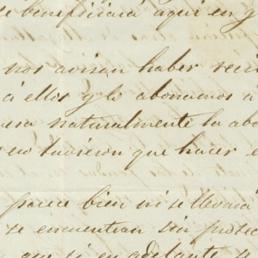 se beneficiará aquí en y
nos avisan haber reci
á ellos y lo abonamos á
naturalmente tu abo
tuvieron que hacer e
parece bien ni se llevará
se encuentran sin
que si en adelante se